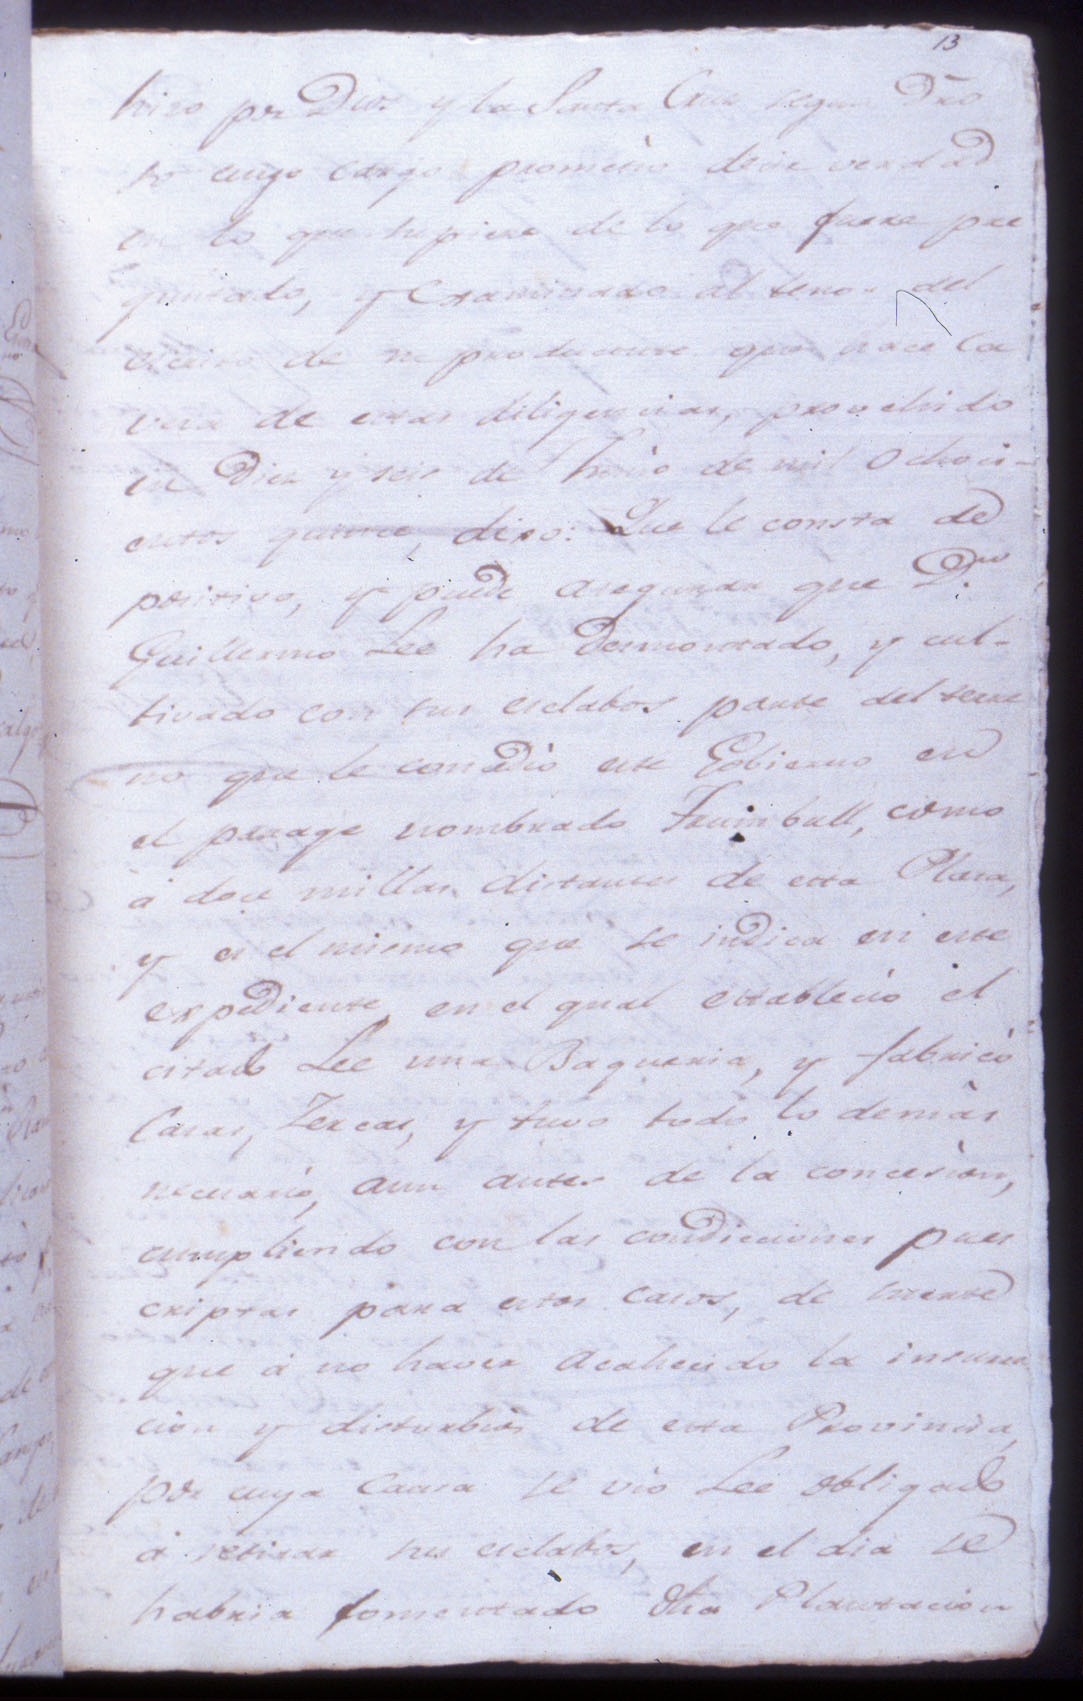 13
hizo por Dios y la Santa Cruz segun Dro
so cuyo cargo prometio decir verdad
en lo que supiere de lo que fuere pre
guntado, y Examinado al tenor del
escrito de que hace Ca
veza de estas diligencias, provehido
en Diez y seis de de mil ochoci-
entos quince, dixo: Que le consta de
positivo, y puede asegurar que Dn
Guillermo Lee ha Desmontado, y cul-
tivado con sus esclabos parte del terre
no que le concedió este Gobierno en
el parage nombrado Trumbull, como
á doce millas distantes de esta Plaza,
y es el mismo que se indica en este
expediente, en el qual establecio el
citado Lee una Baqueria, y fabricó
Casas, Zercas, y tuvo todo lo demàs
necesario, aun antes de la concesion,
cumpliendo con las condicciones pres
criptas para estos casos, de suerte
que á no haver acahecido la insurrec
cion y disturbios de esta Provincia,
por cuya Causa se vio Lee obligado
à retirar sus esclabos, en el dia se
habria fomentado dha Plantacion